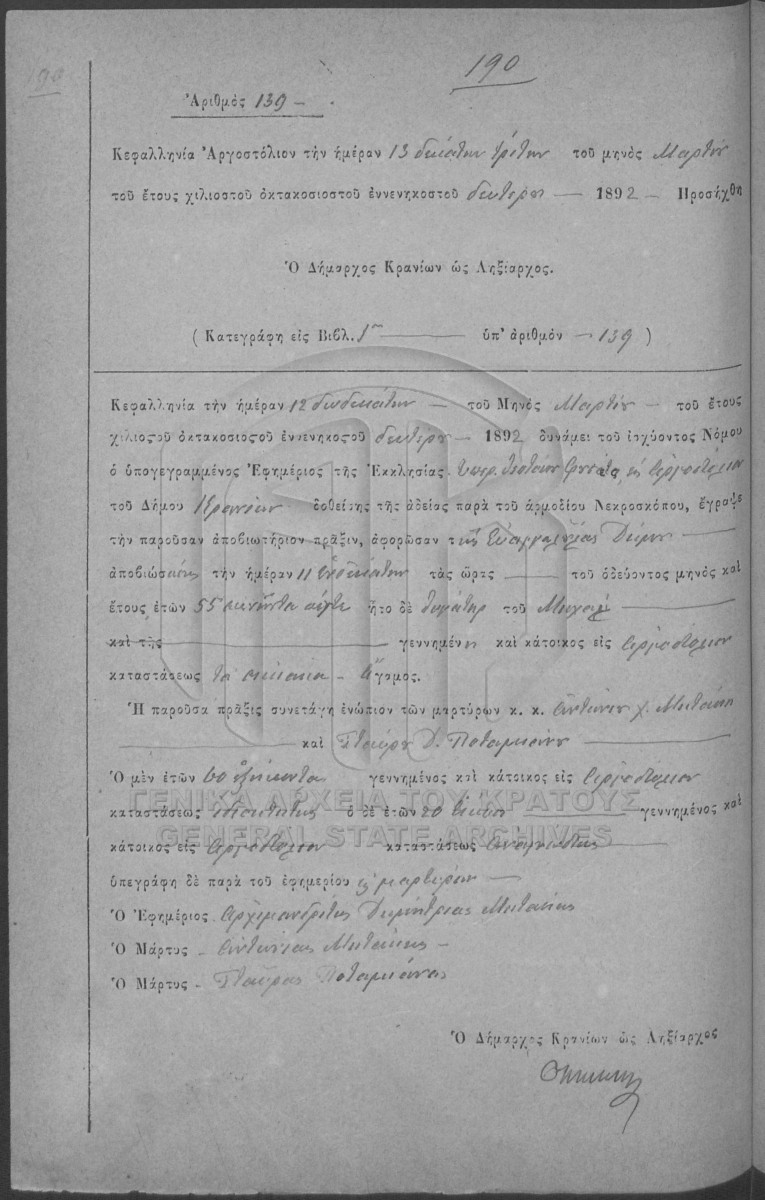 190
190
Ἀριθμὸς 139 —
Κεφαλληνία Ἀργοστόλιον τὴν ἡμέραν 13 δεκάτην τρίτην τοῦ μηνὸς Μαρτίου
τοῦ ἔτους χιλιοστοῦ ὀκτακοσιοστοῦ ἐννενηκοστοῦ δευτέρου — 1892 — Προσήχθη
Ὁ Δήμαρχος Κρανίων ὡς Ληξίαρχος.
( Κατεγράφη εἰς Βιβλ. 1ον — ὑπ' ἀριθμὸν — 139 )
Κεφαλληνία τὴν ἡμέραν 12 δωδεκάτην — τοῦ Μηνὸς Μαρτίου — τοῦ ἔτους
χιλιοστοῦ ὀκτακοσιοστοῦ ἐννενηκοστοῦ δευτέρου — 1892 δυνάμει τοῦ ἰσχύοντος Νόμου
ὁ ὑπογεγραμμένος Ἐφημέριος τῆς Ἐκκλησίας Ὑπερ. Θεοτόκου εἰς Ἀργοστόλιον
τοῦ Δήμου Κρανίων δοθείσης τῆς ἀδείας παρὰ τοῦ ἁρμοδίου Νεκροσκόπου, ἔγραψε
τὴν παροῦσαν ἀποβιωτήριον πρᾶξιν, ἀφορῶσαν τῆς Εὐαγγελίας —
ἀποβιωσάσης τὴν ἡμέραν 11 ἑνδεκάτην τὰς ὥρας — τοῦ ὁδεύοντος μηνὸς καὶ
ἔτους ἐτῶν 55 πενῆντα πέντε ἦτο δὲ θυγάτηρ τοῦ Μιχαὴλ —
καὶ τῆς — γεννημένη καὶ κάτοικος εἰς Ἀργοστόλιον
καταστάσεως τὰ οἰκιακὰ — ἄγαμος.
Ἡ παροῦσα πρᾶξις συνετάγη ἐνώπιον τῶν μαρτύρων κ. κ. Ἀντωνίου χ. Μεταξᾶ
— καὶ Σταύρου Δ. Ποταμιάνου —
Ὁ μὲν ἐτῶν 60 ἑξήκοντα γεννημένος καὶ κάτοικος εἰς Ἀργοστόλιον
καταστάσεως — ὁ δὲ ἐτῶν 20 εἴκοσι — γεννημένος καὶ
κάτοικος εἰς Ἀργοστόλιον καταστάσεως —
ὑπεγράφη δὲ παρὰ τοῦ ἐφημερίου καὶ μαρτύρων —
Ὁ Ἐφημέριος Ἀρχιμανδρίτης Δημήτριος Μεταξᾶς
Ὁ Μάρτυς — Ἀντώνιος Μεταξᾶς —
Ὁ Μάρτυς — Σταῦρος Ποταμιάνος
Ὁ Δήμαρχος Κρανίων ὡς Ληξίαρχος
ΓΕΝΙΚΑ ΑΡΧΕΙΑ ΤΟΥ ΚΡΑΤΟΥΣ
GENERAL STATE ARCHIVES